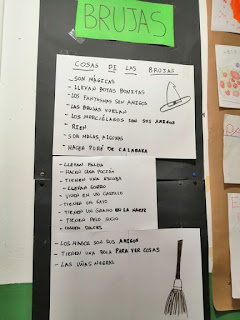 BRUJAS
COSAS DE LAS BRUJAS
- SON MÁGICAS
- LLEVAN BOTAS BONITAS
- LOS FANTASMAS SON AMIGOS
- LAS BRUJAS VUELAN
- LOS MURCIÉLAGOS SON SUS AMIGOS
- RIEN
- SON MALAS, ALGUNAS
- HACEN PURÉ DE CALABAZA
- LLEVAN FALDA
- HACEN UNA POCIÓN
- TIENEN UNA ESCOBA
- LLEVAN GORRO
- VIVEN EN UN CASTILLO
- TIENEN UN GATO
- TIENEN UN GRANO EN LA NARIZ
- TIENEN PELO SUCIO
- COMEN DULCES
- LOS BÚHOS SON SUS AMIGOS
- TIENEN UNA BOLA PARA VER COSAS
- LAS UÑAS NEGRAS